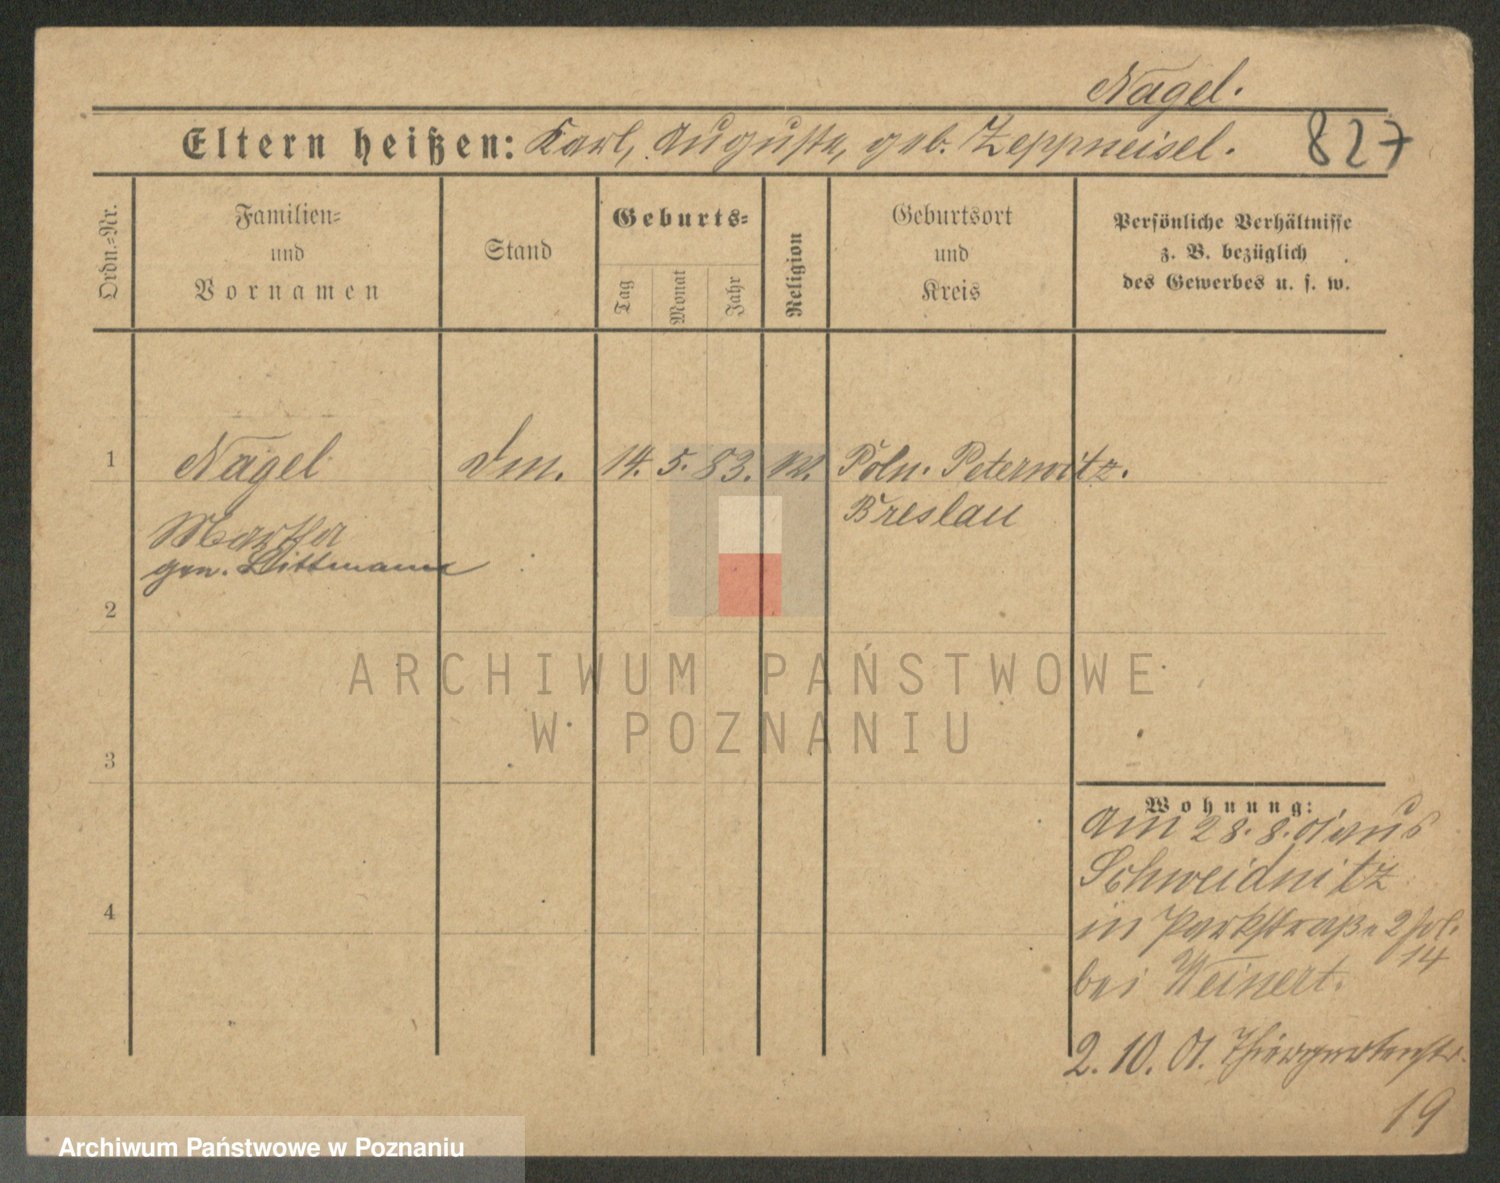 Nagel.
Eltern heißen: Karl, Auguste, geb. Zeppmeisel.
827
Ordn.=Nr.
Familien=
und
Vornamen
Stand
Geburts=
Tag
Monat
Jahr
Religion
Geburtsort
und
Kreis
Persönliche Verhältnisse
z. B. bezüglich
des Gewerbes u. s. w.
1 Nagel 14. 5. 83. Poln. Peterwitz.
Martha Breslau
gen. Dittmann
2
3
4
ARCHIWUM PAŃSTWOWE
W POZNANIU
Wohnung:
am 28.8.01 aus
Schweidnitz
in Parkstraße 2
14
bei Weinert.
2. 10. 01. Thiergartenstr.
19
Archiwum Państwowe w Poznaniu